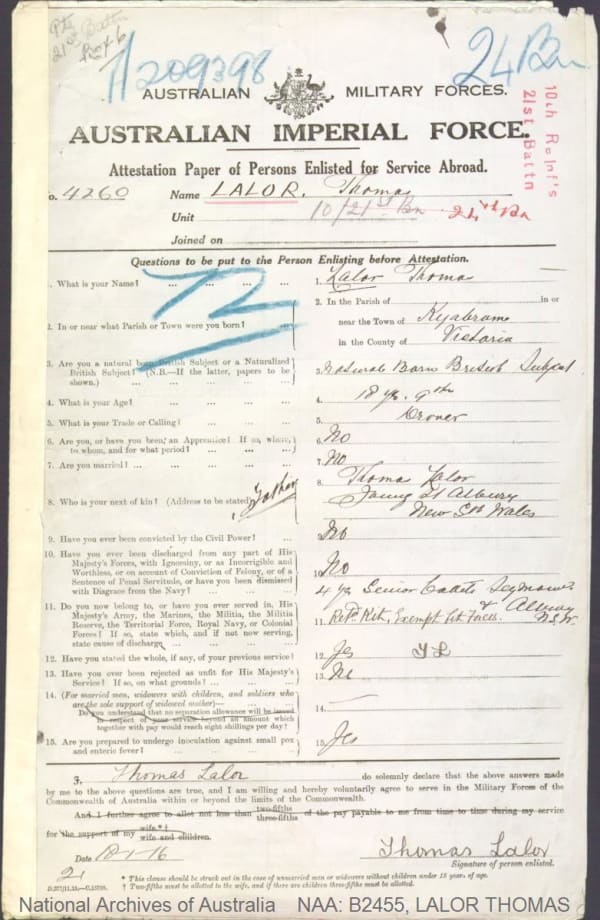 Pte
21st Battn
Box 6
209398
24 Bn
AUSTRALIAN MILITARY FORCES.
10th Reinf's
21st Battn
AUSTRALIAN IMPERIAL FORCE.
Attestation Paper of Persons Enlisted for Service Abroad.
o. 4260 Name LALOR, Thomas
Unit 10/21st Bn 24th Bn
Joined on
Questions to be put to the Person Enlisting before Attestation.
1. What is your Name? ... ... ... ... 1. Lalor Thomas
2. In or near what Parish or Town were you born? ... 2. In the Parish of in or
near the Town of Kyabram
in the County of Victoria
3. Are you a natural born British Subject or a Naturalized
British Subject? (N.B.—If the latter, papers to be
shown.) ... ... ... ... ... 3. Natural Born British Subject
4. What is your Age? ... ... ... ... 4. 18 yrs. 9
5. What is your Trade or Calling? ... ... ... 5.
6. Are you, or have you been, an Apprentice? If so, where,
to whom, and for what period? ... ... ... 6. No
7. Are you married? ... ... ... ... 7. No
8. Who is your next of kin? (Address to be stated) Father 8. Thomas Lalor
St Albury
New Sth Wales
9. Have you ever been convicted by the Civil Power? ... 9. No
10. Have you ever been discharged from any part of His
Majesty's Forces, with Ignominy, or as Incorrigible and
Worthless, or on account of Conviction of Felony, or of a
Sentence of Penal Servitude, or have you been dismissed
with Disgrace from the Navy? ... ... ... 10. No
11. Do you now belong to, or have you ever served in, His
Majesty's Army, the Marines, the Militia, the Militia
Reserve, the Territorial Force, Royal Navy, or Colonial
Forces? If so, state which, and if not now serving,
state cause of discharge 11. 4 yrs Senior Cadets Seymour
& Albury N.S.W.
Retd. Kit, Exempt Cit. Forces.
12. Have you stated the whole, if any, of your previous service? 12. Yes TL
13. Have you ever been rejected as unfit for His Majesty's
Service? If so, on what grounds? ... ... 13. No
14. (For married men, widowers with children, and soldiers who
are the sole support of widowed mother)—
Do you understand that no separation allowance will be issued
in respect of your service beyond an amount which
together with pay would reach eight shillings per day? 14. —
15. Are you prepared to undergo inoculation against small pox
and enteric fever? ... ... ... ... 15. Yes
I, Thomas Lalor do solemnly declare that the above answers made
by me to the above questions are true, and I am willing and hereby voluntarily agree to serve in the Military Forces of the
Commonwealth of Australia within or beyond the limits of the Commonwealth.
And I further agree to allot not less than two-fifths three-fifths of the pay payable to me from time to time during my service
for the support of my wife*† wife and children.
Date 10-1-16 Thomas Lalor
Signature of person enlisted.
21
* This clause should be struck out in the case of unmarried men or widowers without children under 18 years of age.
† Two-fifths must be allotted to the wife, and if there are children three-fifths must be allotted.
National Archives of Australia NAA: B2455, LALOR THOMAS